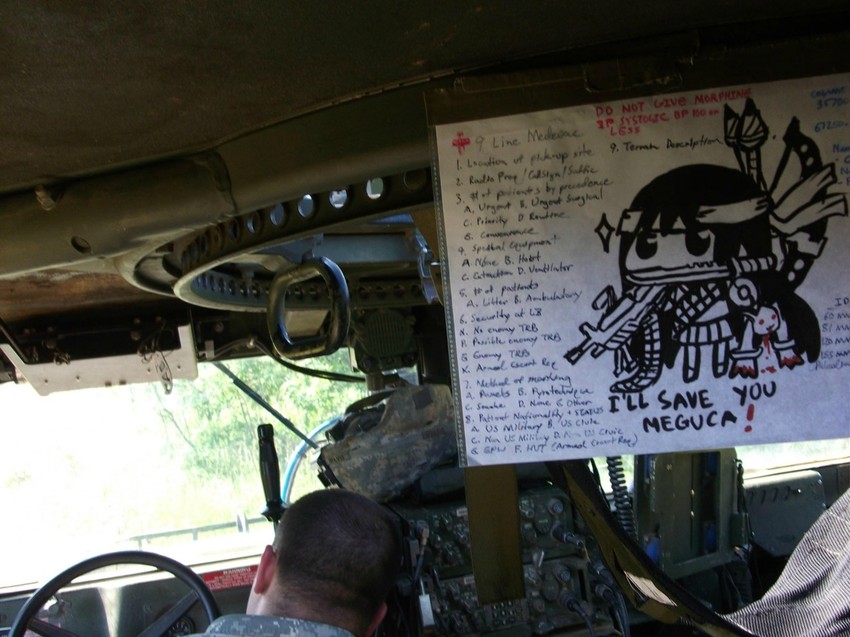 DO NOT GIVE MORPHINE
IF SYSTOLIC BP 100 or
LESS
9 Line Medevac
9. Terrain Description
1. Location of pickup site
2. Radio Freq / Callsign / Suffix
3. # of patients by precedence
A. Urgent B. Urgent Surgical
C. Priority D. Routine
E. Convenience
4. Special Equipment
A. None B. Hoist
C. Extraction D. Ventilator
5. # of patients
A. Litter B. Ambulatory
6. Security at LZ
N. No enemy TRB
P. Possible enemy TRB
E. Enemy TRB
X. Armed Escort Req
7. Method of marking
A. Panels B. Pyrotechnic
C. Smoke D. None E. Other
8. Patient Nationality + STATUS
A. US Military B. US Civie
C. Non US Military D. Non US Civie
E. EPW F. HVT (Armed Escort Req)
I'LL SAVE YOU
MEGUCA!
WARNING